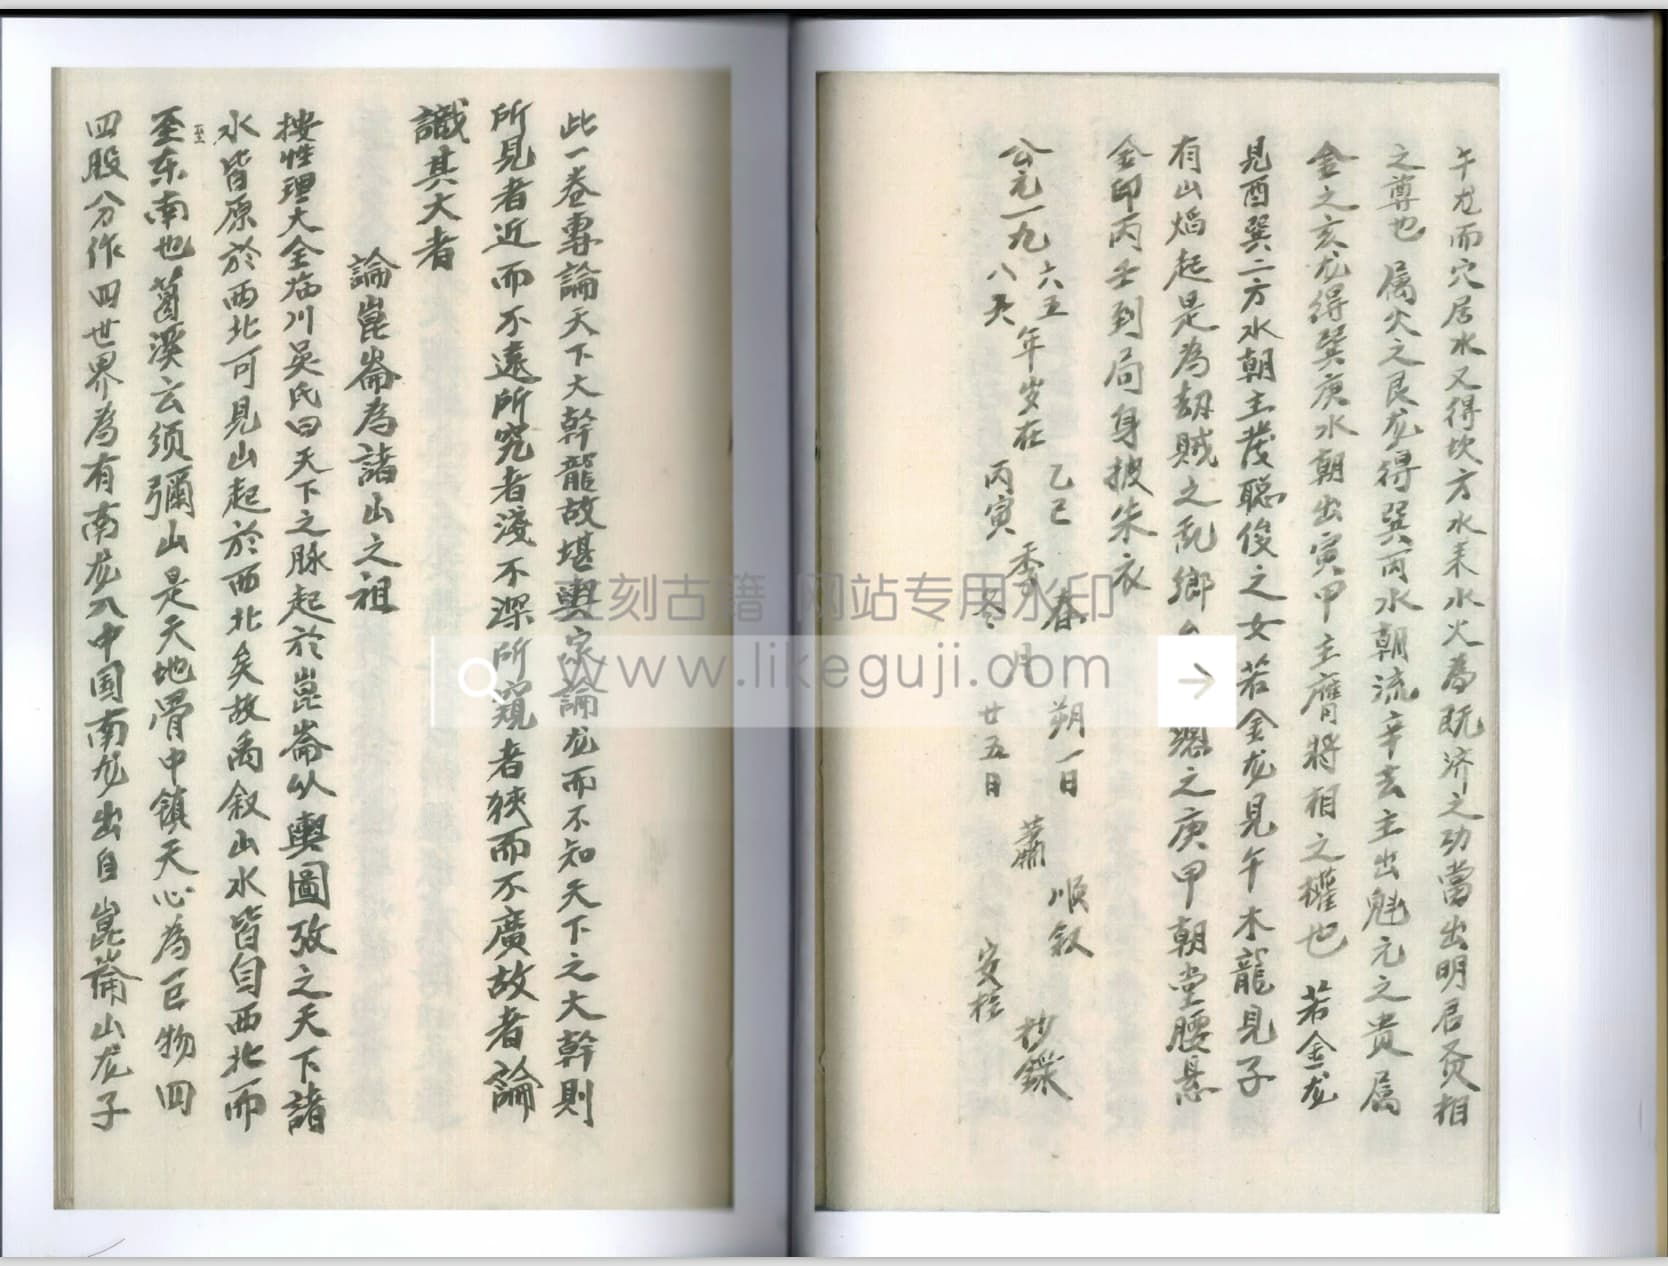 午龙而穴居水又得坎方水来水火為既济之功當出明君良相
之尊也 属火之艮龙得巽丙水朝流辛去主出魁元之贵属
金之亥龙得巽庚水朝出寅甲主膺將相之權也 若金龙
見酉巽二方水朝主發聪俊之女若金龙見午木龍見子
有山焰起是為劫贼之乱鄉 之庚甲朝堂腰悬
金印丙壬到局身披朱衣
公元一九 六五 年岁在 乙巳 季 春 月 朔一日 蕭 順叙 抄錄
八六 丙寅 冬 廿五日 安柱
此一卷專論天下大幹龍故堪輿家論龙而不知天下之大幹則
所見者近而不遠所究者淺不深所窺者狹而不廣故者論
識其大者
論崑崙為諸山之祖
按性理大全临川吴氏曰天下之脉起於崑崙从輿圖攷之天下諸
水皆原於西北可見山起於西北矣故禹叙山水皆自西北而
至
至东南也 溪云须彌山是天地骨中镇天心為巨物四
四股分作四世界為有南龙入中国南龙出自崑崙山龙子
立刻古籍 网站专用水印
www.likeguji.com